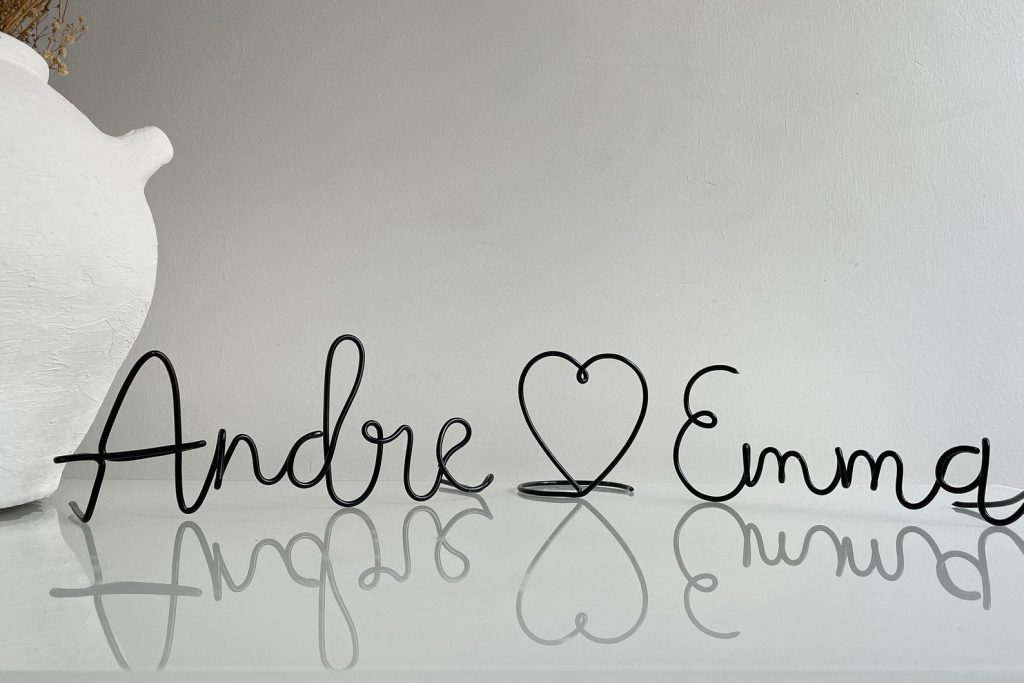 Andre ♡ Emma